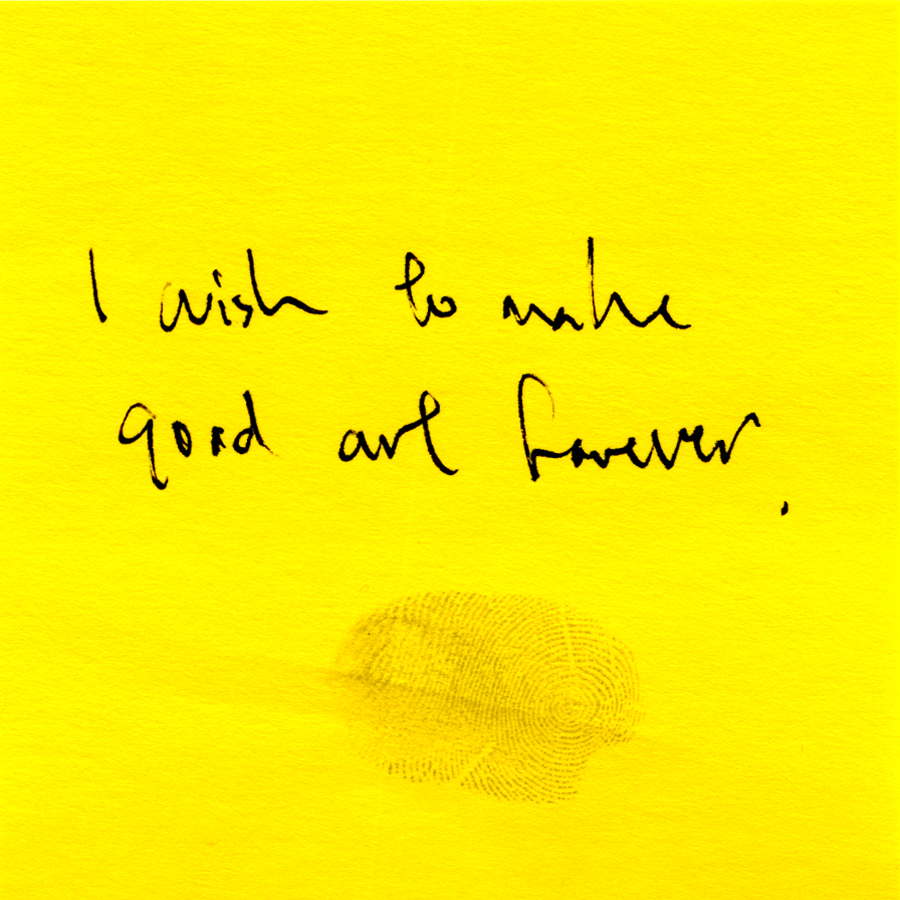 I wish to make
good art forever.